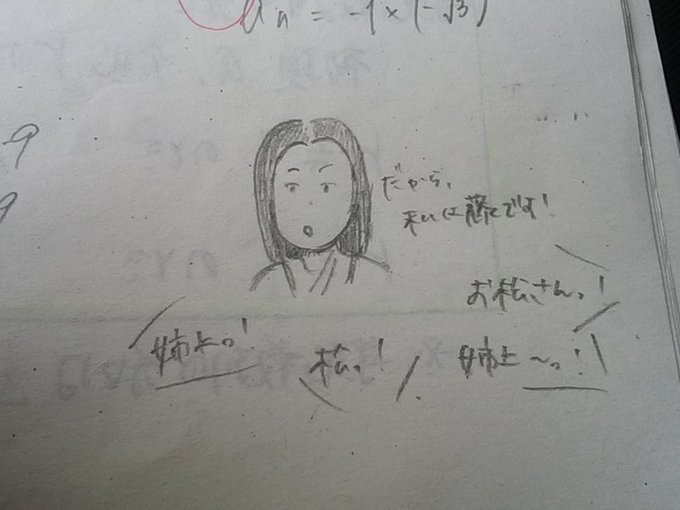 an = -1×(-√3)
9
だから、
私は藤です!
9
お松さんっ!
姉上っ!
松っ!
姉上〜っ!